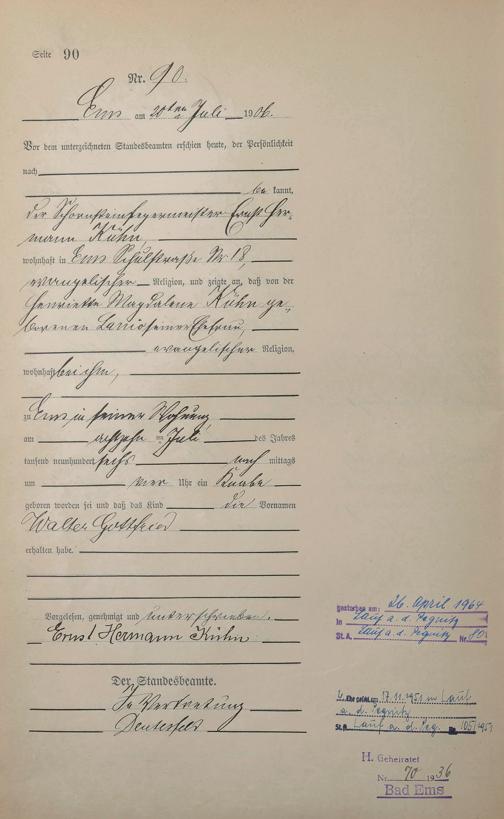 Seite 90
Nr. 90.
Ems am 20ten Juli 1906.
Vor dem unterzeichneten Standesbeamten erschien heute, der Persönlichkeit
nach
be kannt,
der Schornsteinfegermeister Ernst Her-
mann Kühn,
wohnhaft in Ems Schulstraße Nr 18,
evangelischer Religion, und zeigte an, daß von der
Henriette Magdalene Kühn ge-
borenen seiner Ehefrau,
evangelischer Religion,
wohnhaft bei ihm,
zu Ems in seiner Wohnung
am achtzehn ten Juli des Jahres
tausend neunhundert sechs nach mittags
um vier Uhr ein Knabe
geboren worden sei und daß das Kind die Vornamen
Walter Gottfried
erhalten habe.
Vorgelesen, genehmigt und unterschrieben.
Ernst Hermann Kühn
Der Standesbeamte.
In Vertretung
gestorben am: 26. April 1964
in Lauf a. d. Pegnitz
St.A. Lauf a. d. Pegnitz Nr.
Ehe 17.11.1951 in Lauf
a. d. Pegnitz
St.A. Lauf a. d. Peg. Nr. 105/1951
H. Geheiratet
Nr. 70 1936
Bad Ems